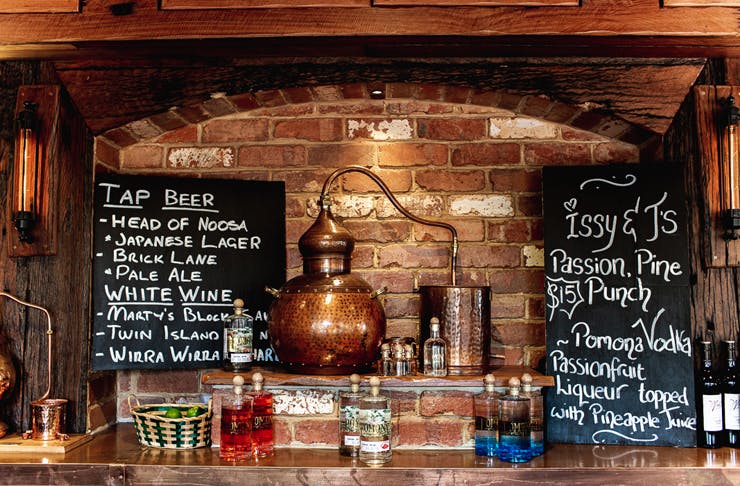 TAP BEER
- HEAD OF NOOSA
* JAPANESE LAGER
- BRICK LANE
* PALE ALE
WHITE WINE
- MARTY'S BLOCK
- TWIN ISLAND
- WIRRA WIRRA
issy & J's
Passion, Pine
$15 Punch
~ Pomona Vodka
Passionfruit
Liqueur topped
with Pineapple Juice